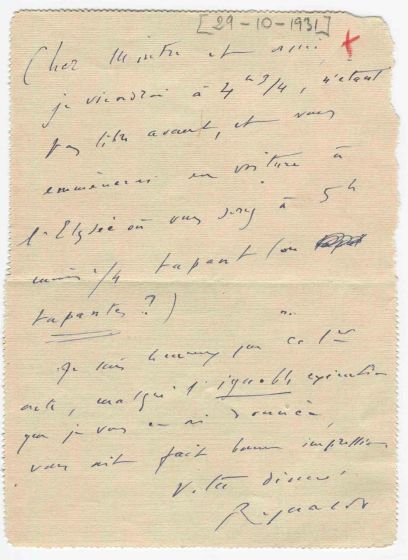 [29-10-1931]
Cher Maître et ami,
je viendrai à 4 h 3/4, n'étant
pas libre avant, et vous
emmènerai en voiture à
l'Elysée où vous serez à 5h
moins 1/4 tapant (ou
tapantes?)
Je suis heureux que ce 1er
acte, malgré l'ignoble exécution
que je vous en ai donnée,
vous ait fait bonne impression
Votre
Reynaldo